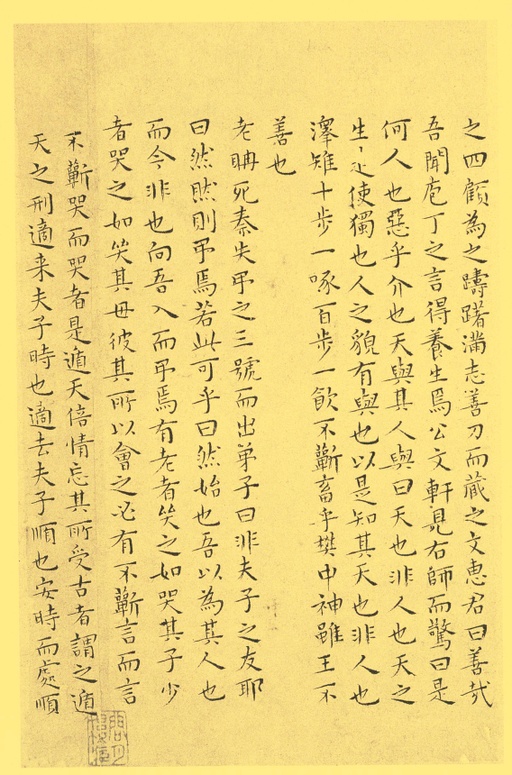 之四顧為之躊躇滿志善刀而藏之文惠君曰善哉
吾聞庖丁之言得養生焉公文軒見右師而驚曰是
何人也惡乎介也天與其人與曰天也非人也天之
生是使獨也人之貌有與也以是知其天也非人也
澤雉十步一啄百步一飲不蘄畜乎樊中神雖王不
善也
老聃死秦失弔之三號而出弟子曰非夫子之友耶
曰然然則弔焉若此可乎曰然始也吾以為其人也
而今非也向吾入而弔焉有老者笑之如哭其子少
者哭之如笑其母彼其所以會之必有不蘄言而言
不蘄哭而哭者是遁天倍情忘其所受古者謂之遁
天之刑適来夫子時也適去夫子順也安時而處順